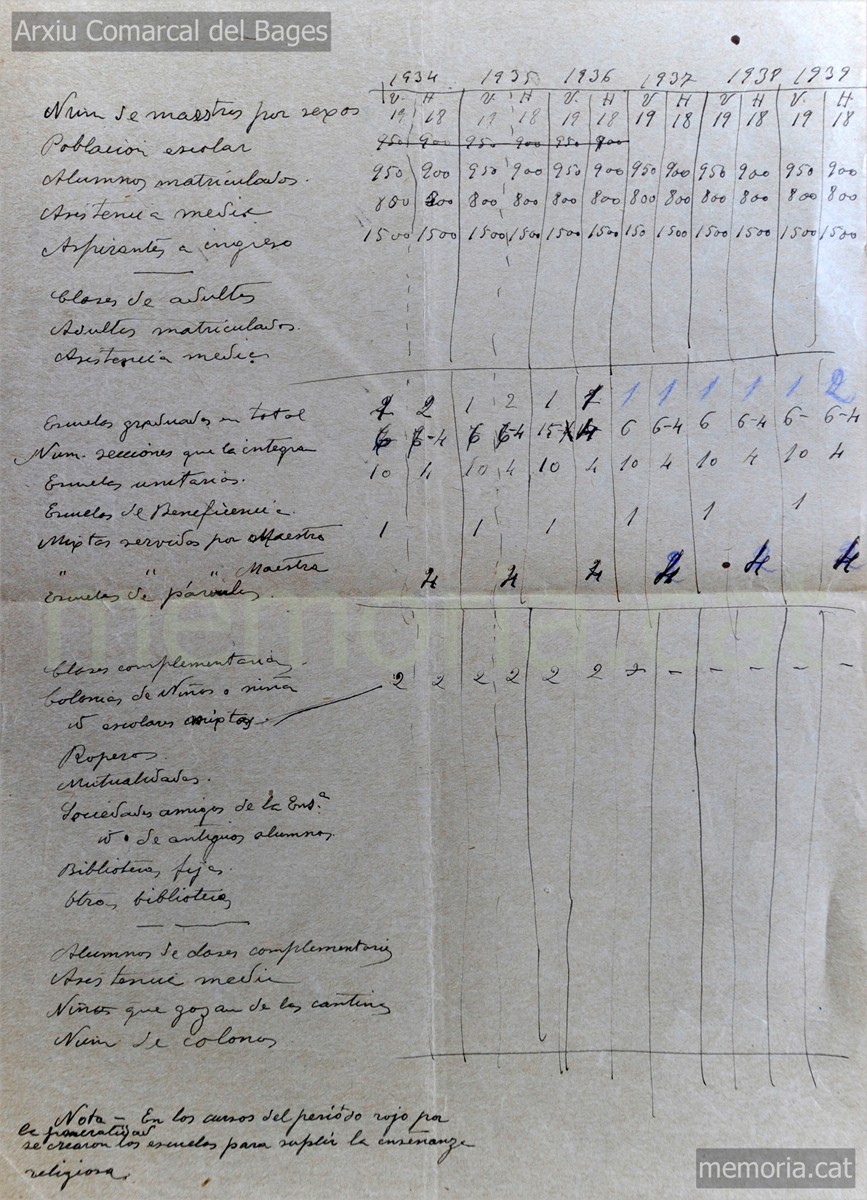 Arxiu Comarcal del Bages
1934 1935 1936 1937 1938 1939
V. H V. H V. H V. H V. H V. H
Num de maestros por sexos 19 18 19 18 19 18 19 18 19 18 19 18
Poblacion escolar 950 900 950 900 950 800
Alumnos matriculados. 950 900 950 900 950 900 950 900 950 900 950 900
Asistencia media 800 800 800 800 800 800 800 800 800 800 800 800
Aspirantes a ingreso 1500 1500 1500 1500 1500 1500 150 1500 1500 1500 1500 1500
Clases de adultos
Adultos matriculados.
Asistencia media
Escuelas graduadas en total 2 1 2 1 1 1 1 1 1 2
Num. secciones que la integra 6 6-4 6 6-4 15 4 6 6-4 6 6-4 6- 6-4
Escuelas unitarias. 10 4 10 4 10 4 10 4 10 4 10 4
Escuelas de Beneficencia.
Mixtas servidas por Maestro 1 1 1 1 1 1
" " " Maestra
Escuelas de párvulos. 4 4 4 4 4 4
Clases complementarias.
Colonias de Niños o niña 2 2 2 2 2 2 - - - - -
id escolares mixtas
Roperos.
Mutualidades.
Sociedades amigos de la Ens.ª
id. de antiguos alumnos.
Bibliotecas fijas.
Otras bibliotecas
Alumnos de clases complementarias
Asistencia media
Niños que gozan de las cantinas
Num de colonos
Nota - En los cursos del periódo rojo por
la
se crearon los escuelas para suplir la enseñanza
religiosa.
memoria.cat
memoria.cat